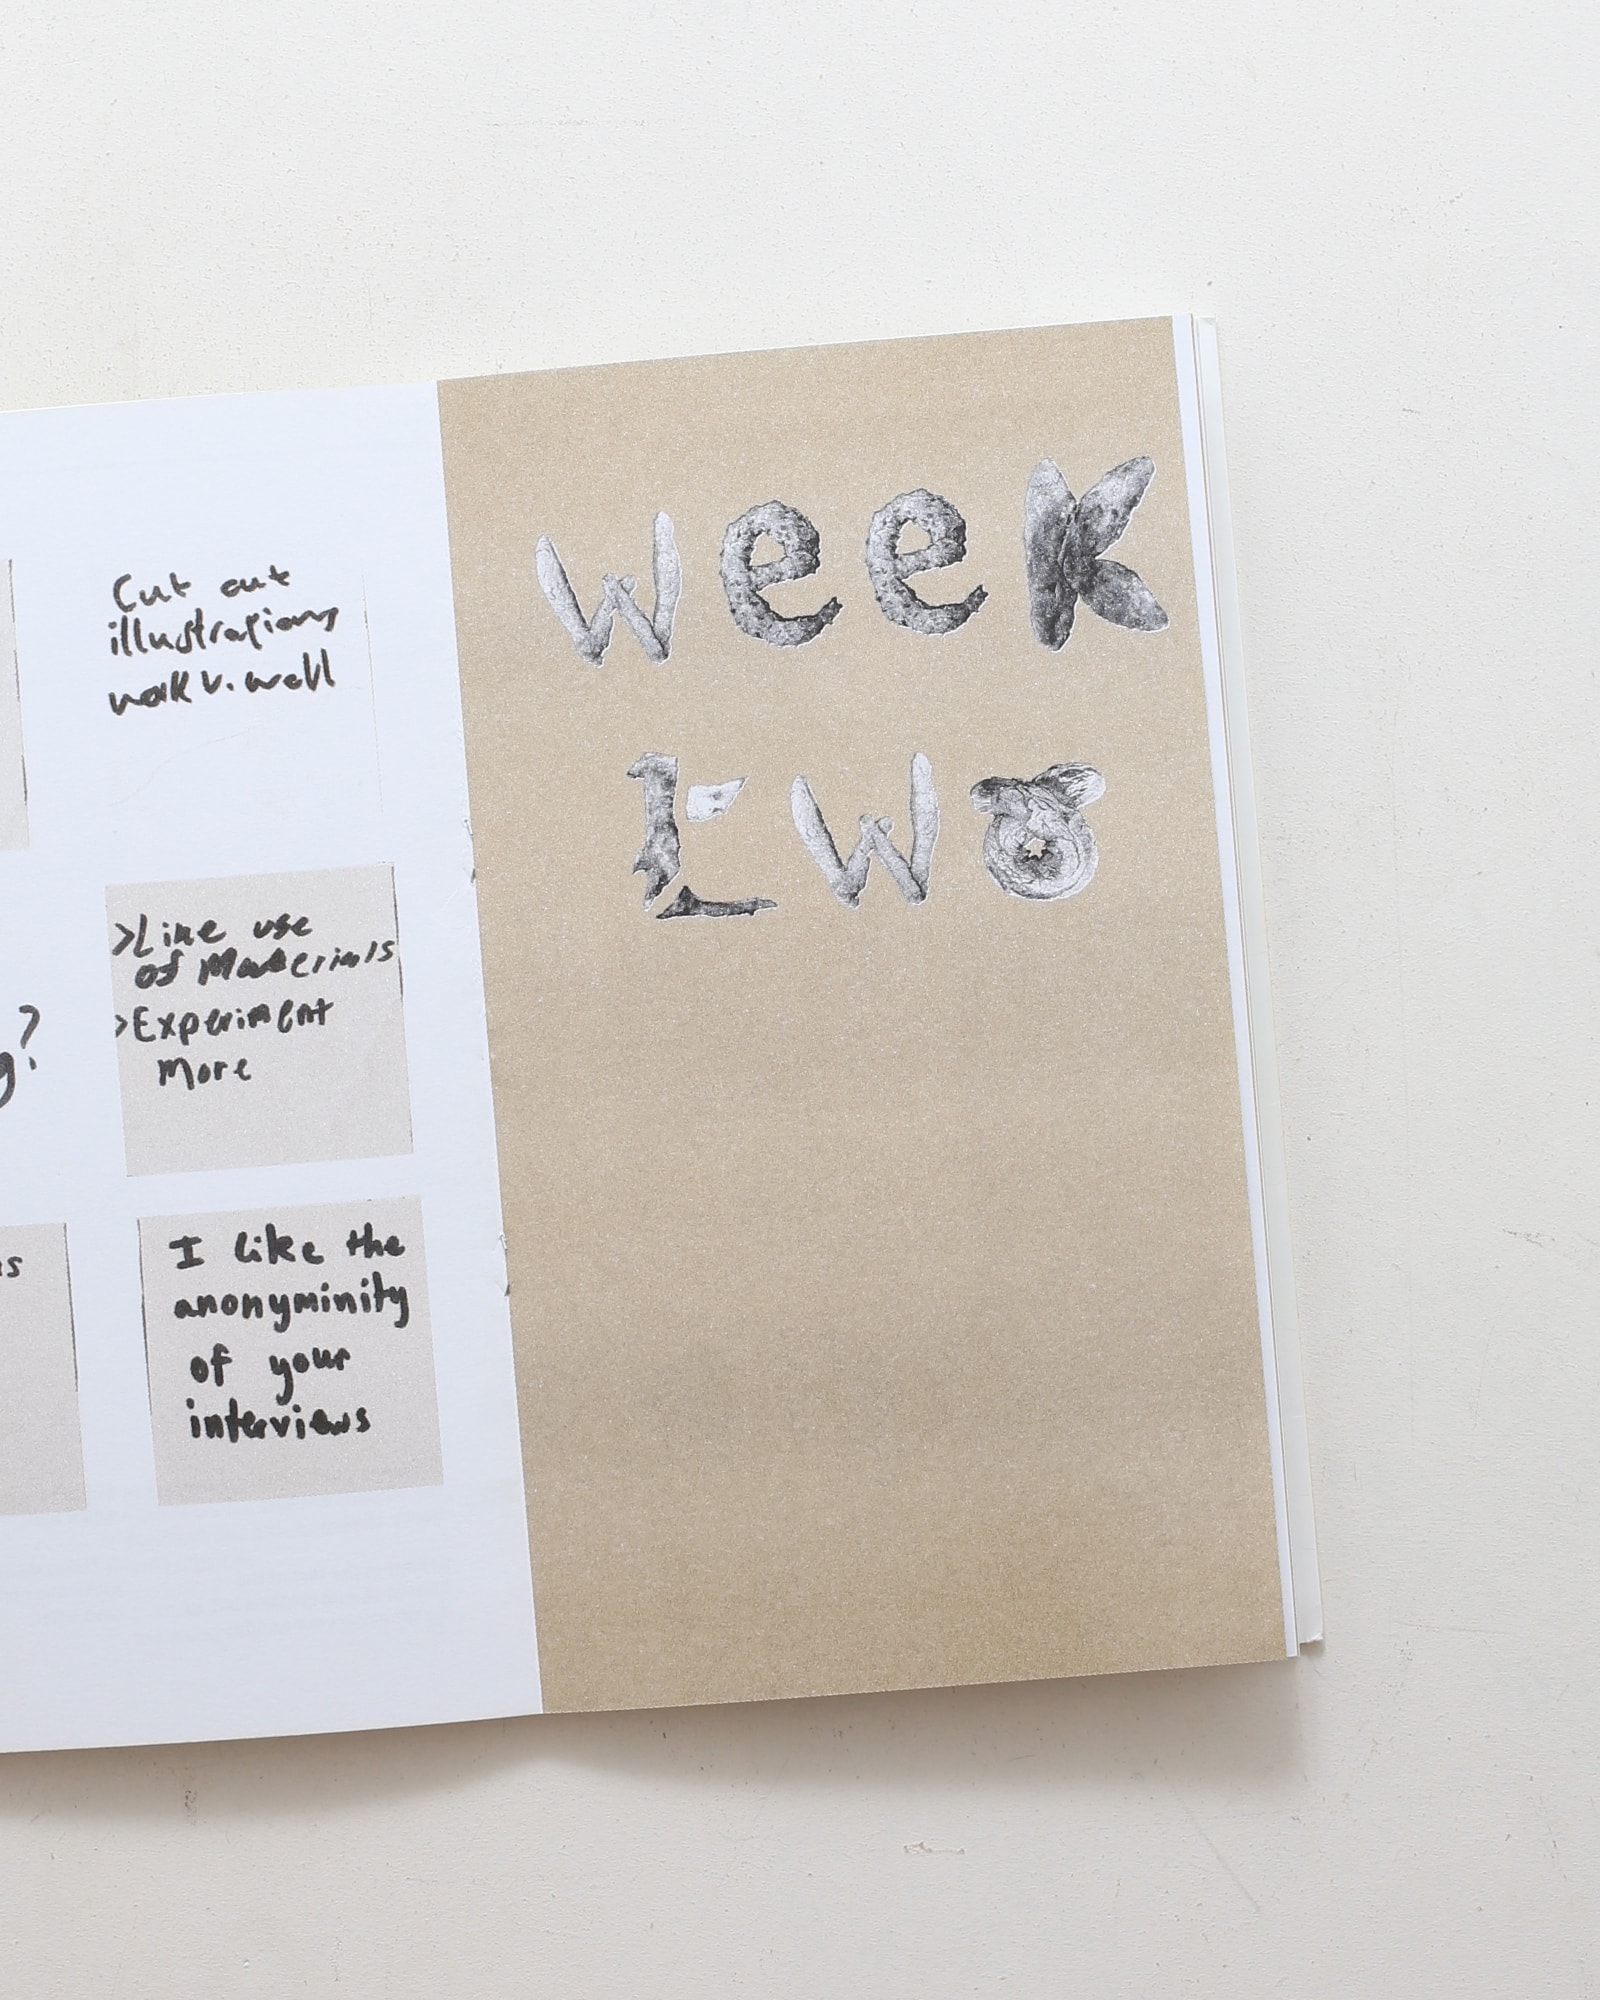 Cut out
illustrations
work v. well
>Like use
of Materials
>Experiment
More
g?
s
I like the
anonyminity
of your
interviews
week
two